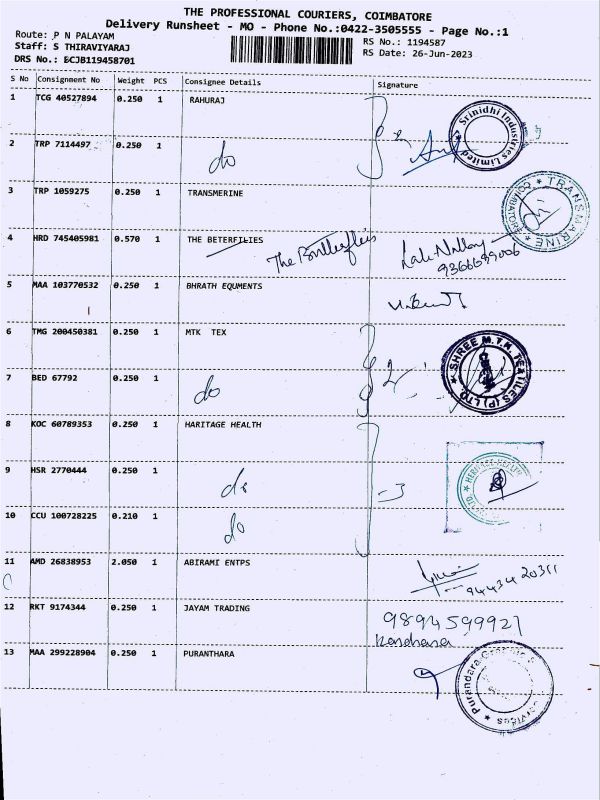 THE PROFESSIONAL COURIERS, COIMBATORE
Delivery Runsheet - MO - Phone No.:0422-3505555 - Page No.:1
Route: P N PALAYAM
RS No.: 1194587
Staff: S THIRAVIYARAJ
RS Date: 26-Jun-2023
DRS No.: ECJB119458701
S No Consignment No Weight PCS Consignee Details Signature
1 TCG 40527894 0.250 1 RAHURAJ
Srinidhi Industries Limited
2 TRP 7114497 0.250 1 do
3 TRP 1059275 0.250 1 TRANSMERINE
TRANSMARINE COIMBATORE
4 HRD 745405981 0.570 1 THE BETERFILIES The Butterflies
9366699006
5 MAA 103770532 0.250 1 BHRATH EQUMENTS
6 TMG 200450381 0.250 1 MTK TEX
2
SHREE M.T.K. TEXTILES (P) LTD
7 BED 67792 0.250 1 do
8 KOC 60789353 0.250 1 HARITAGE HEALTH
9 HSR 2770444 0.250 1 do
-3
HERITAGE HEALTH
10 CCU 100728225 0.210 1 do
11 AMD 26838953 2.050 1 ABIRAMI ENTPS
9443420311
12 RKT 9174344 0.250 1 JAYAM TRADING
9894599921
Kandhana
13 MAA 299228904 0.250 1 PURANTHARA
Purandara